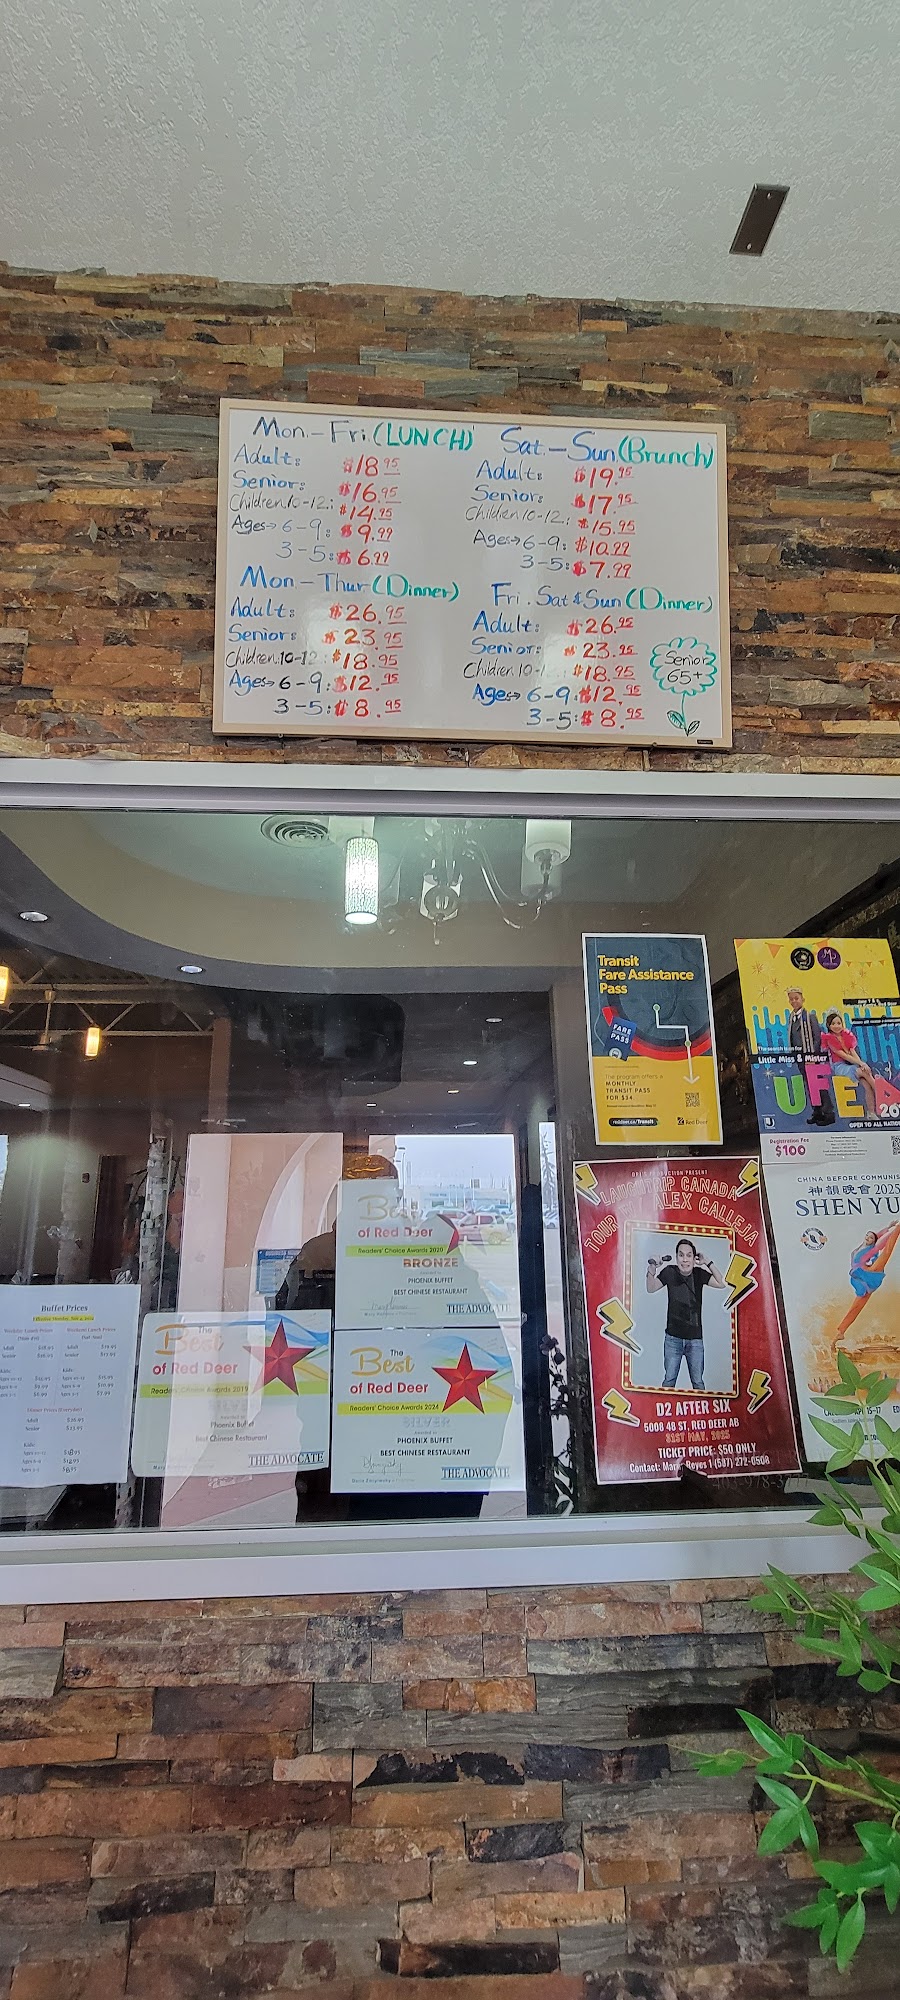 Mon.-Fri.(LUNCH)
Adult: $18.95
Senior: $16.95
Children 10-12.: $14.95
Ages→6-9: $9.99
3-5: $6.99
Sat.-Sun.(Brunch)
Adult: $19.95
Senior: $17.95
Children 10-12.: $15.95
Ages→6-9: $10.99
3-5: $7.99
Mon-Thur(Dinner)
Adult: $26.95
Senior: $23.95
Children:10-12: $18.95
Ages→6-9: $12.95
3-5: $8.95
Fri. Sat & Sun (Dinner)
Adult: $26.95
Senior: $23.95
Children 10-1 $18.95
Ages→ 6-9: $12.95
3-5: $8.95
Senior
65+
Transit
Fare Assistance
Pass
FARE
PASS
The program offers a
MONTHLY
TRANSIT PASS
FOR $34
reddeer.ca/Transit
Red Deer
The search is on for
Little Miss & Mister
UFE
OPEN TO ALL
Registration Fee
$100
CHINA BEFORE COMMUNIS
神韻晚會 2025
SHEN YU
LAUGHTRIP CANADA
TOUR ALEX CALLEJA
D2 AFTER SIX
5008 48 ST, RED DEER AB
31ST MAY, 2025
TICKET PRICE: $50 ONLY
Contact: Reyes 1 (587) 272-0508
Best
of Red Deer
Readers' Choice Awards 2020
BRONZE
PHOENIX BUFFET
BEST CHINESE RESTAURANT
THE ADVOCATE
The
Best
of Red Deer
Readers' Choice Awards 2019
SILVER
Phoenix Buffet
Best Chinese Restaurant
THE ADVOCATE
The
Best
of Red Deer
Readers' Choice Awards 2024
SILVER
PHOENIX BUFFET
BEST CHINESE RESTAURANT
THE ADVOCATE
Buffet Prices
Weekday Lunch Prices
Weekend Lunch Prices
Adult $18.95
Senior $16.95
Adult $19.95
Senior $17.95
Kids:
Dinner Prices (Everyday)
Adult $26.95
Senior $23.95
Kids:
$18.95
$12.95
$8.95